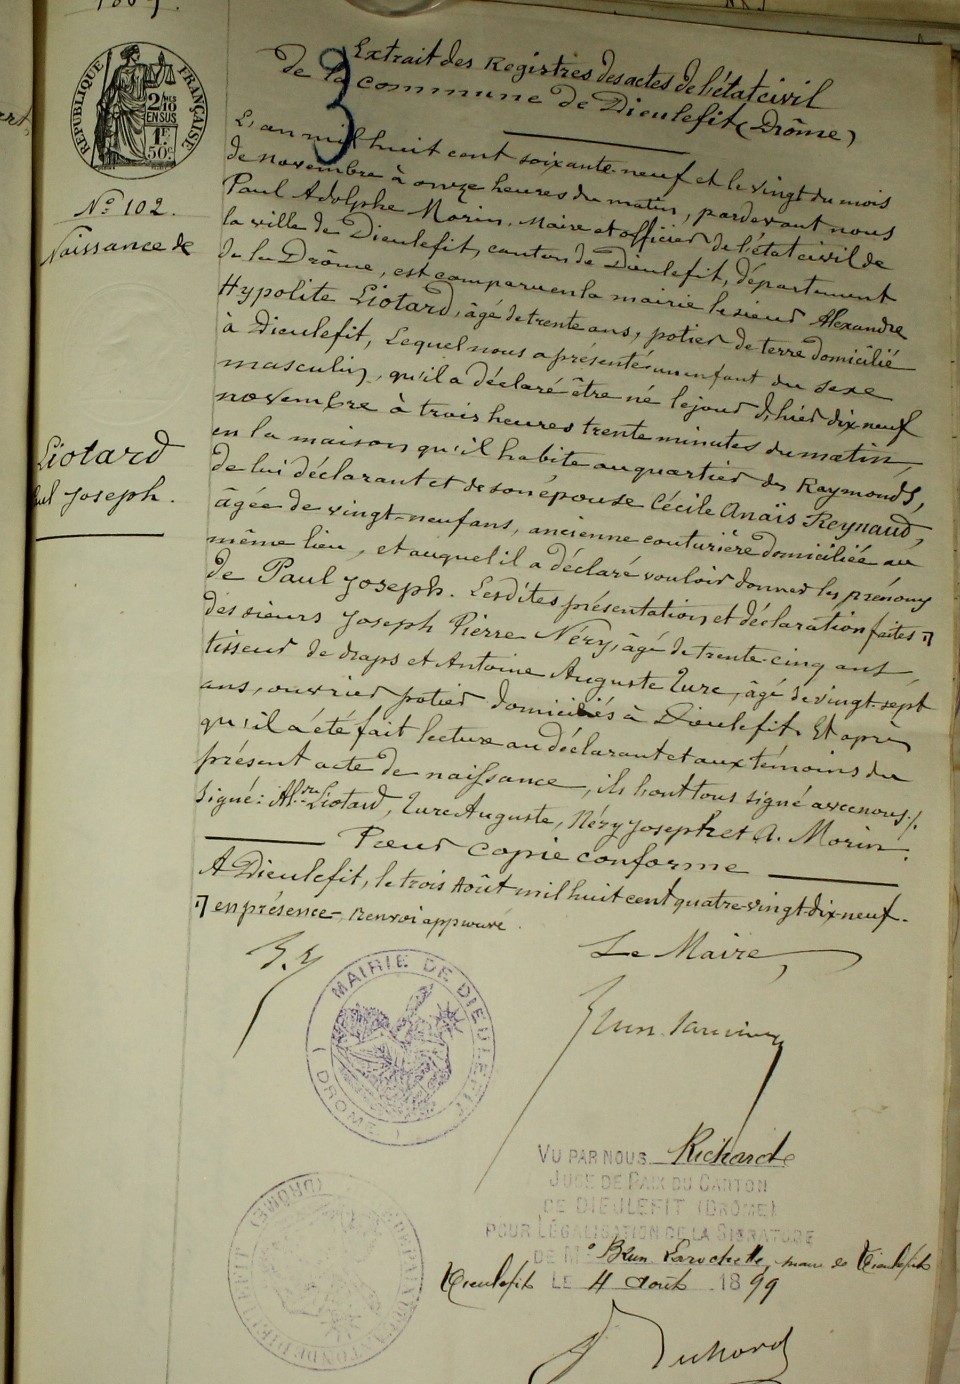 1869.
RÉPUBLIQUE FRANÇAISE
2/10 EN SUS
1F 50c
3
Extrait des Registres des actes de l'état civil
de la commune de Dieulefit (Drôme)
No 102.
Naissance de
Liotard
Paul Joseph.
L'an mil huit cent soixante-neuf et le vingt du mois
de novembre à onze heures du matin, pardevant nous
Paul Adolphe Morin, Maire et officier de l'état civil de
la ville de Dieulefit, canton de Dieulefit, département
de la Drôme, est comparu en la mairie le sieur Alexandre
Hypolite Liotard, âgé de trente ans, potier de terre domicilié
à Dieulefit, Lequel nous a présenté un enfant du sexe
masculin, qu'il a déclaré être né le jour d'hier dix-neuf
novembre à trois heures trente minutes du matin,
en la maison qu'il habite au quartier des Raymonds,
de lui déclarant et de son épouse Cécile Anaïs Reynaud,
âgée de vingt-neuf ans, ancienne couturière domiciliée au
même lieu, et auquel il a déclaré vouloir donner les prénoms
de Paul Joseph. Lesdites présentation et déclaration faites ㄱ
des sieurs Joseph Pierre Néry, âgé de trente-cinq ans,
tisseur de draps et Antoine Auguste Ture, âgé de vingt-sept
ans, ouvrier potier domiciliés à Dieulefit. Et après
qu'il a été fait lecture au déclarant et aux témoins du
présent acte de naissance, ils l'ont tous signé avec nous ./.
Signé: Aldre Liotard, Ture Auguste, Néry Joseph et A. Morin.
Pour copie conforme
A Dieulefit, le trois Août mil huit cent quatre-vingt-dix-neuf.
ㄱ en présence - Renvoi approuvé.
Le Maire,
MAIRIE DE DIEULEFIT (DROME)
VU PAR NOUS Richard
JUGE DE PAIX DU CANTON
DE DIEULEFIT (DROME)
POUR LÉGALISATION DE LA SIGNATURE
DE Mo Brun Larochette, maire de Dieulefit
Dieulefit LE 4 août 1899
(DROME)